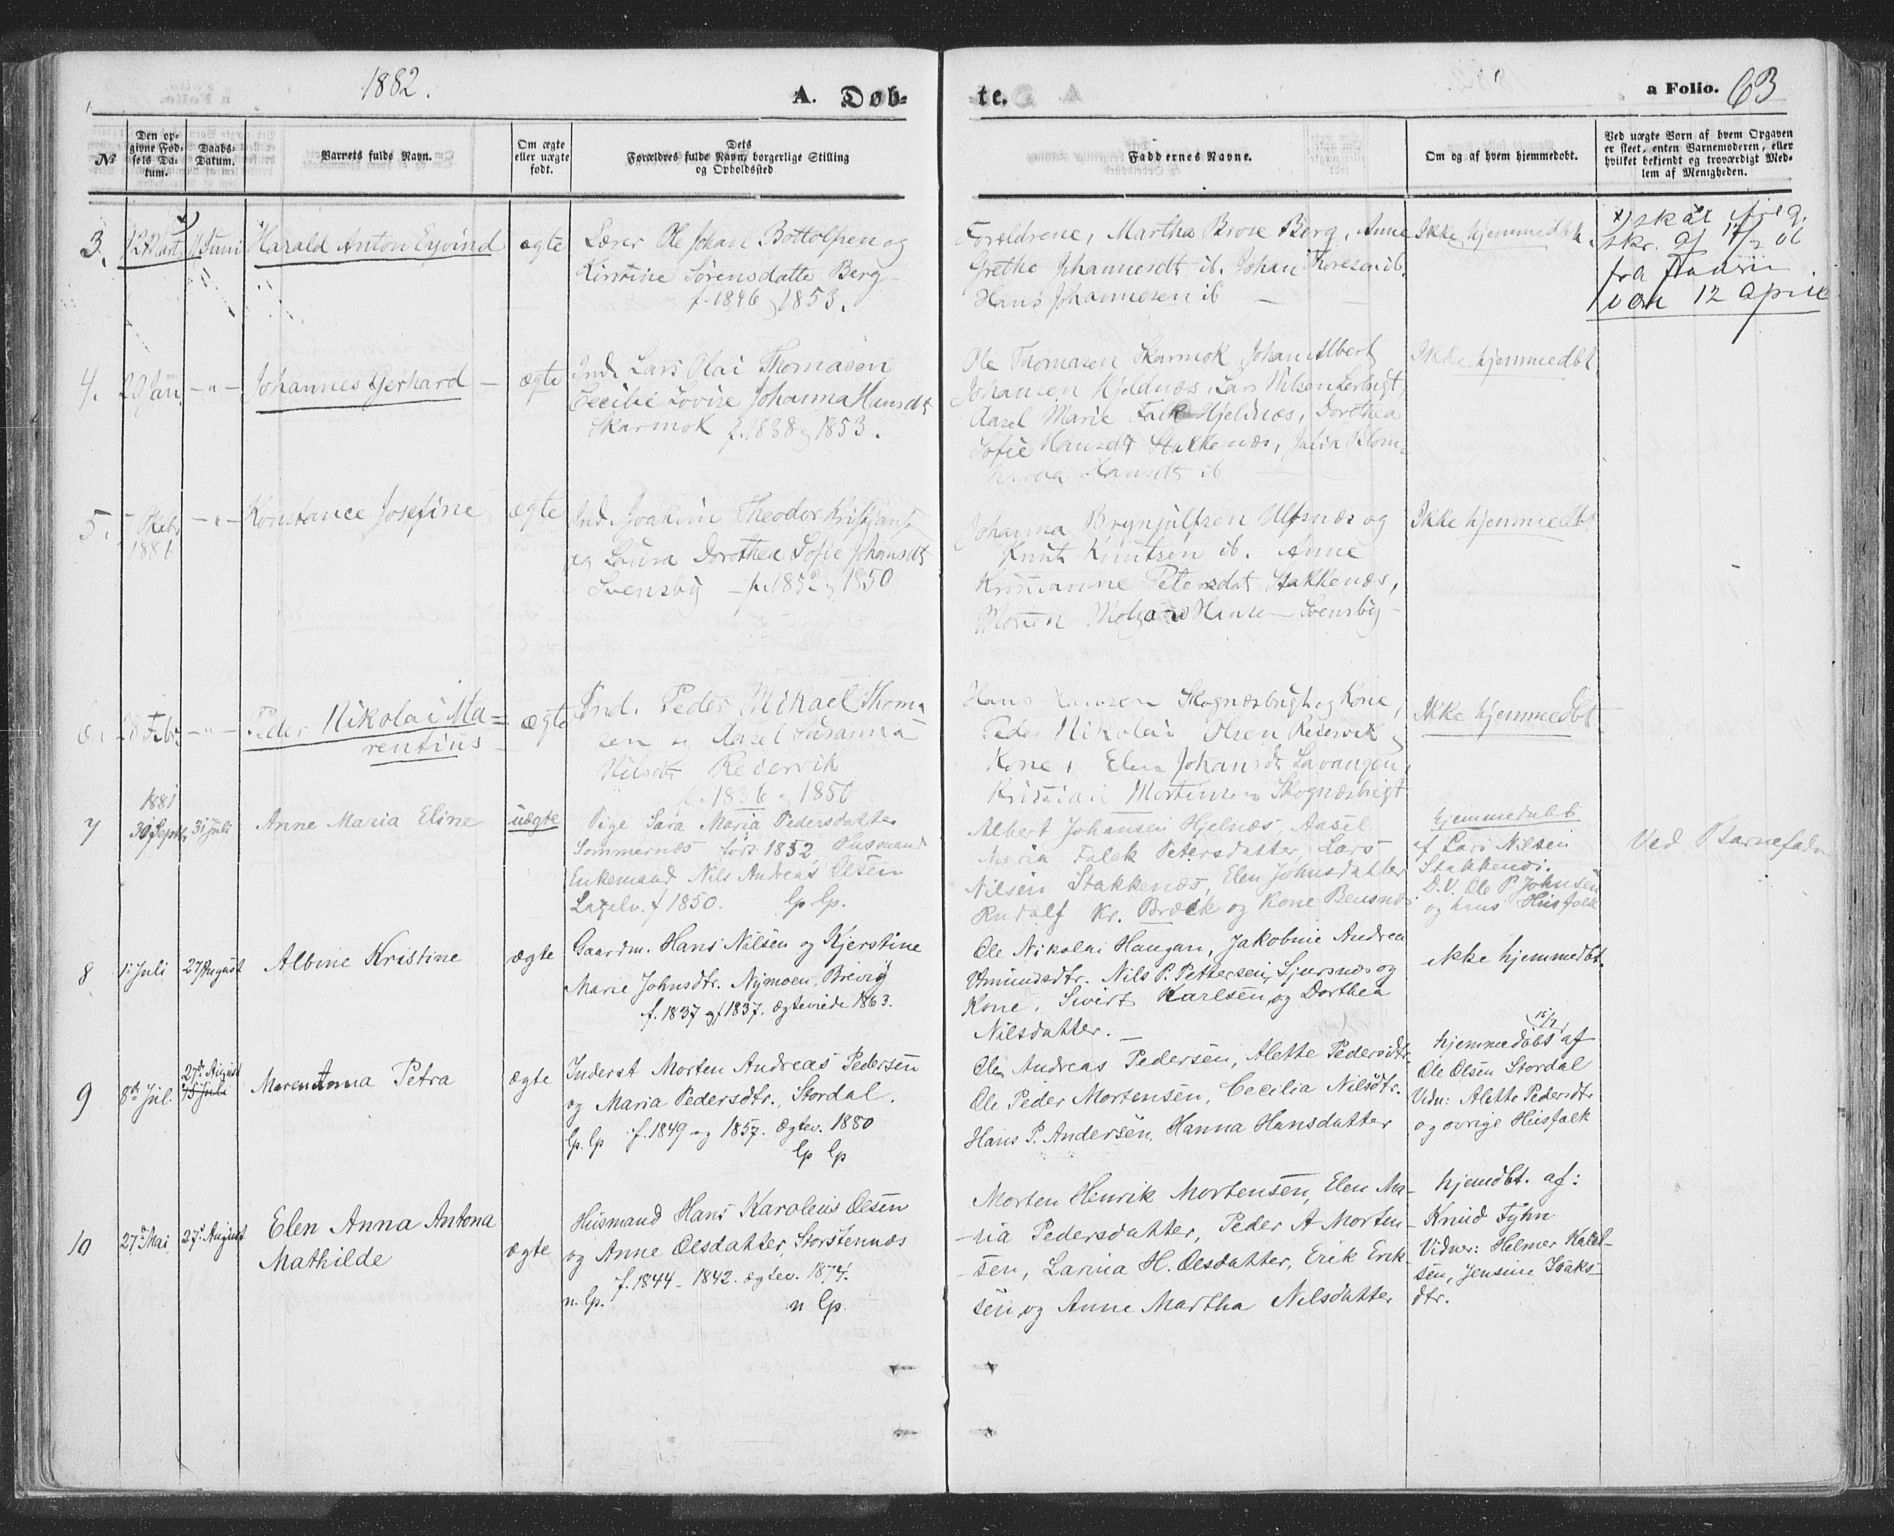 1882.
A. Døb-
te.
a Folio. 63
№
Den op-
givne Fød-
sels Da-
tum.
Daabs-
Datum.
Barnets fulde Navn.
Om ægte
eller uægte
født.
Dets
Forældres fulde Navn, borgerlige Stilling
og Opholdssted
Faddernes Navne.
Om og af hvem hjemmedøbt.
Ved uægte Børn af hvem Opgaven
er skeet, enten Barnemoderen, eller
hvilket bekjendt og troværdigt Med-
lem af Menigheden.
3.
12 Mart
11 Juni
Harald Anton Eyvind
ægte
Lærer Ole Johan Bottolfsen og
Kirstine Sørensdatter Berg
f. 1846 og 1853.
Forældrene, Martha Brose Berg, Anne
Grethe Johannesdt ib. Johan Thoresen ib.
Hans Johannesen ib
Ikke hjemmedøbt
x) skal iflg.
skr. af
fra
være 12 april
4.
20 Jan
- " -
Johannes Gerhard
ægte
Ind. Lars Olai Thomasen
Cecilie Lovise Johanna Hansdt
Skarmok f. 1838 og 1853.
Ole Thomasen Skarmok Johan Albert
Johansen Hjeldnæs, Lars Nilsen Lerbugt,
Aasel Marie Falk Hjeldnæs, Dorothea
Sofie Hansdt Stakkenæs, Julia Blom
Hansdt ib
Ikke hjemmedøbt
5.
1881
- " -
Konstance Josefine
ægte
Ind. Joakim Theodor Kristians
og Laura Dorothea Sofie Johansdt
Svensby - f. 1852 og 1850.
Johanna Brynjulfsen Ulfsnæs og
Knut Knutsen ib. Anne
Kristianne Petersdat Stakkenæs,
Hansen Svensby
Ikke hjemmedøbt
6.
18 Febr
- " -
Peder Nikolai Ma-
rentius
ægte
Ind. Peder Mikael Thoma
sen og Aasel Susanna
Nilsdt Reiervik
f. 1836 og 1850
Hans Hansen Skognæsbugt og Kone,
Peder Nikolai Olsen Reiervik og
Kone, Elen Johansdt Lavangen,
Kristian Mortensen Skognæsbugt
Ikke hjemmedøbt
7
1881
30 Septbr
31 Juli
Anne Maria Eline
uægte
Pige Sara Maria Pedersdatter
Sommernæs født 1852 Husmand
Enkemand Nils Andreas Olsen
Laxelv. f 1850. lp. lp.
Albert Johansen Hjelnæs, Aasel
Maria Falck Petersdatter, Lars
Nilsen Stakkenæs, Elen Johnsdatter
Rudolf Kr. Bræck og Kone Bensnæs
Hjemmedøbt
af Lars Nilsen
Stakkenæs.
D.V. Ole P. Johnsen
og hans Husfolk
Ved Barnefader
8
1ste Juli
27 August
Albine Kristine
ægte
Gaardm. Hans Nilsen og Kjerstine
Marie Johnsdtr. Nymoen, Brevig
f. 1837 og f 1837. ægteviede 1863.
Ole Nikolai Haugan, Jakobine Andrea
Amundsdtr. Nils P. Pettersen, Sjursnæs og
Kone, Sivert Karlsen og Dorthea
Nilsdatter.
ikke hjemmedbt.
9
8de Jul.
27de August
15 Juli
Maren Anna Petra
ægte
Inderst Morten Andreas Pedersen
og Maria Pedersdtr., Stordal.
lp. lp f. 1849 og 1857. Ægtev. 1880
lp lp
Ole Andreas Pedersen, Alette Pedersdtr.
Ole Peder Mortensen, Cecilia Nilsdtr.
Hans P. Andersen, Hanna Hansdatter
15/7
hjemmedøbt af
Ole Olsen Stordal
Vidn: Alette Pedersdtr
og øvrige Husfolk
10
27de Mai
27de August
Elen Anna Antona
Mathilde
ægte
Husmand Hans Karolius Olsen
og Anne Olsdatter, Storstennæs
n. lp. f. 1844 - 1842. ægtev. 1874.
n lp.
Morten Henrik Mortensen, Elen Ma-
ria Pedersdatter, Peder A Morten-
sen, Larina H. Olsdatter, Erik Erik-
sen og Anne Martha Nilsdatter
hjemdbt. af:
Knud Fyhn
Vidner: Helmer Karl-
sen, Jensine Isaks-
dtr.